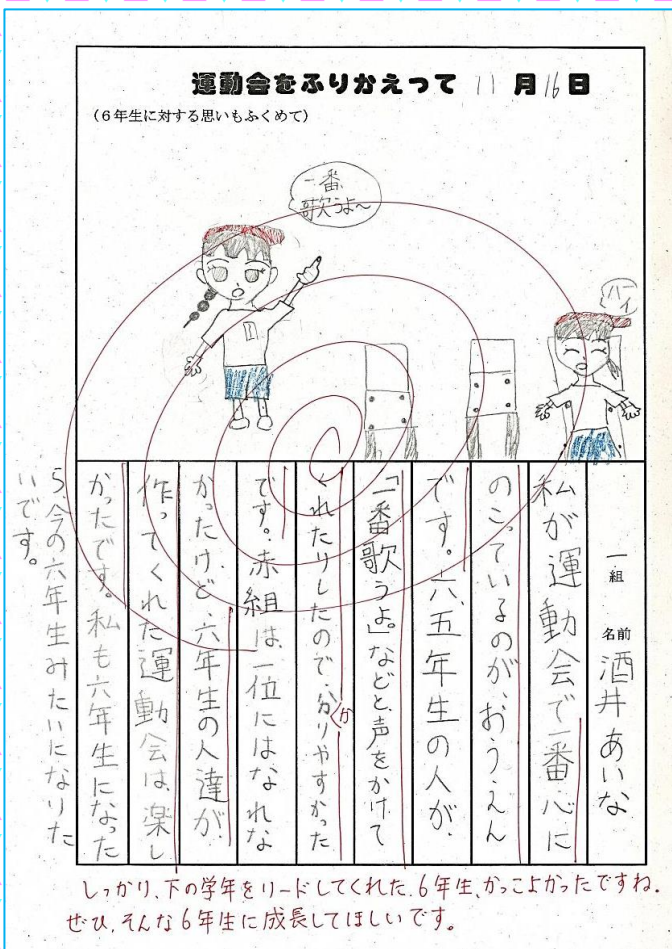 運動会をふりかえって 11月16日
(6年生に対する思いもふくめて)
一番、
歌うよ〜
ハーイ
一組 名前 酒井あいな
私が運動会で一番心に
のこっているのが、おうえん
です。六、五年生の人が、
「一番歌うよ。」などと、声をかけて
くれたりしたので、分かりやすかった
です。赤組は、一位にはなれな
かったけど、六年生の人達が、
作ってくれた運動会は、楽し
かったです。私も六年生になった
ら今の六年生みたいになりた
いです。
しっかり、下の学年をリードしてくれた、6年生、かっこよかったですね。
ぜひ、そんな6年生に成長してほしいです。